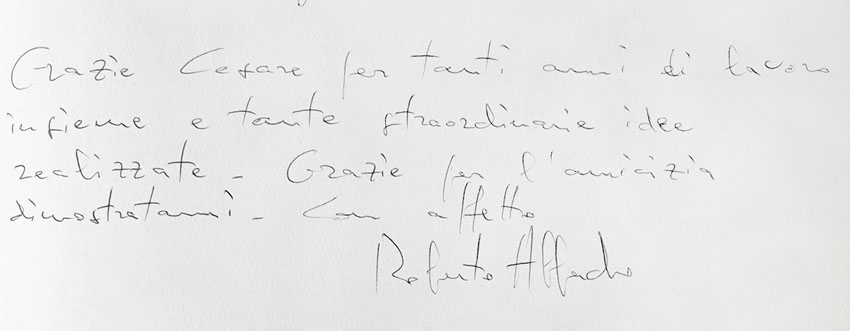 Grazie Cesare per tanti anni di lavoro
insieme e tante straordinarie idee
realizzate - Grazie per l'amicizia
dimostratami - Con affetto
Roberto